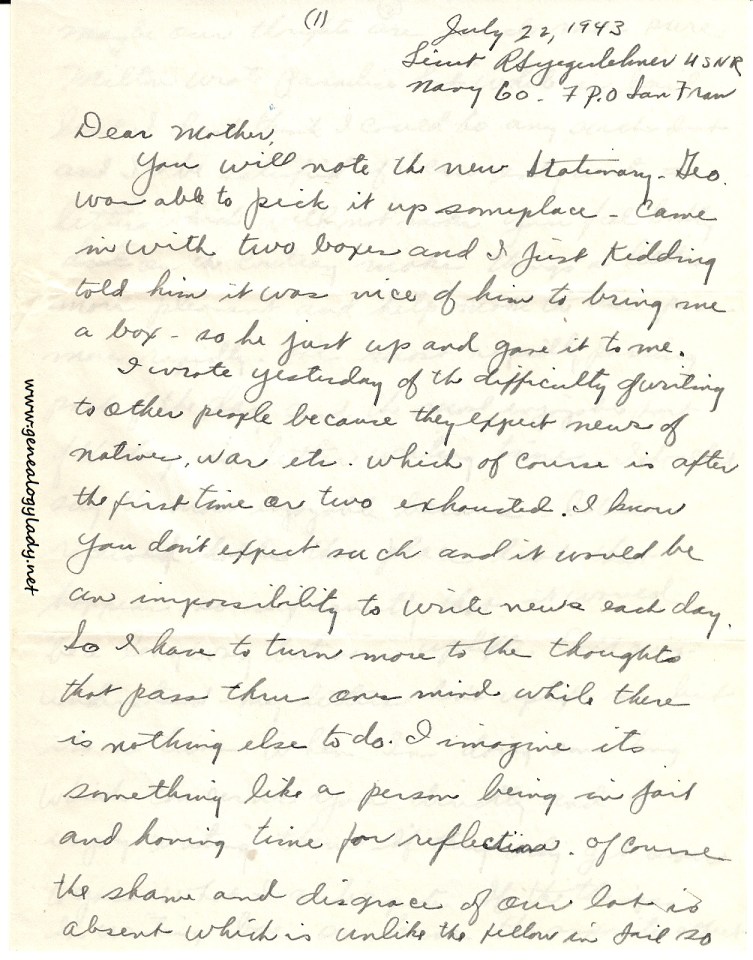 (1)
July 22, 1943
Lieut R S Yegerlehner USNR
Navy 60 - F P.O San Fran
Dear Mother,
You will note the new Stationary - Geo.
was able to pick it up someplace - came
in with two boxes and I just Kidding
told him it was nice of him to bring me
a box - so he just up and gave it to me.
I wrote yesterday of the difficulty of writing
to other people because they expect news of
natives, war etc. which of course is after
the first time or two exhausted. I know
you don't expect such and it would be
an impossibility to write news each day.
So I have to turn more to the thoughts
that pass thru ones mind while there
is nothing else to do. I imagine its
something like a person being in jail
and having time for reflections. Of course
the shame and disgrace of our lot is
absent which is unlike the fellow in Jail so
www.genealogylady.net